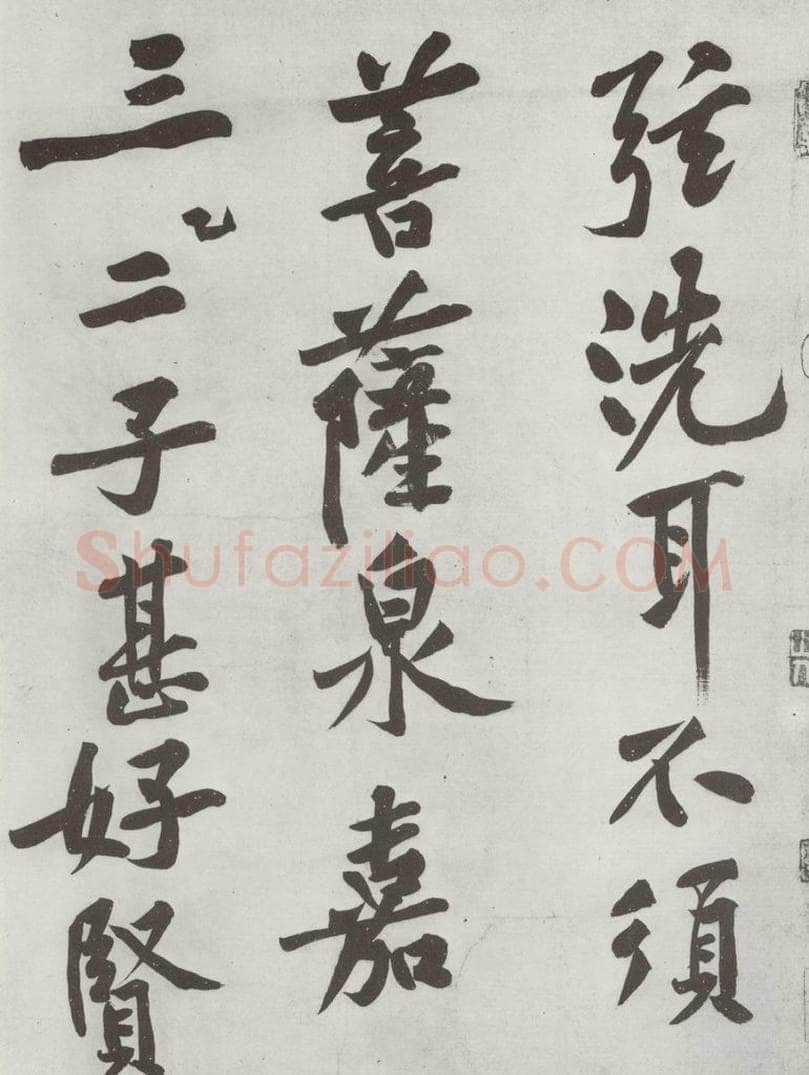 弦洗耳不須
菩薩泉嘉
三二子甚好賢
Shufaziliao.COM